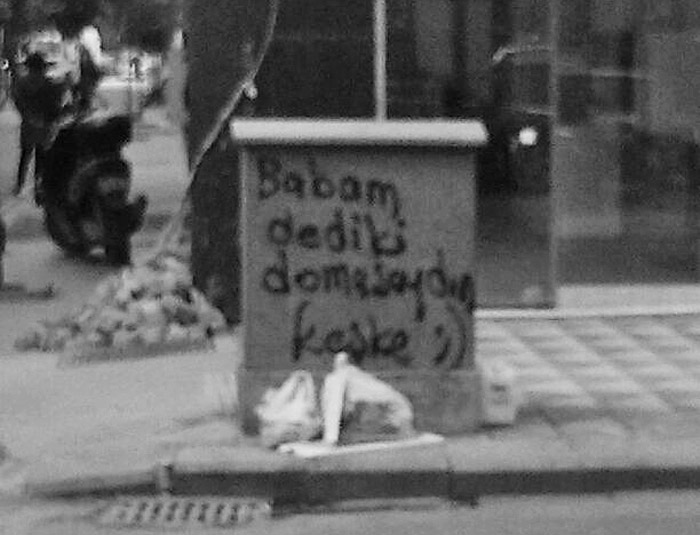 Babam
dediki
domalsaydın
keşke ;))